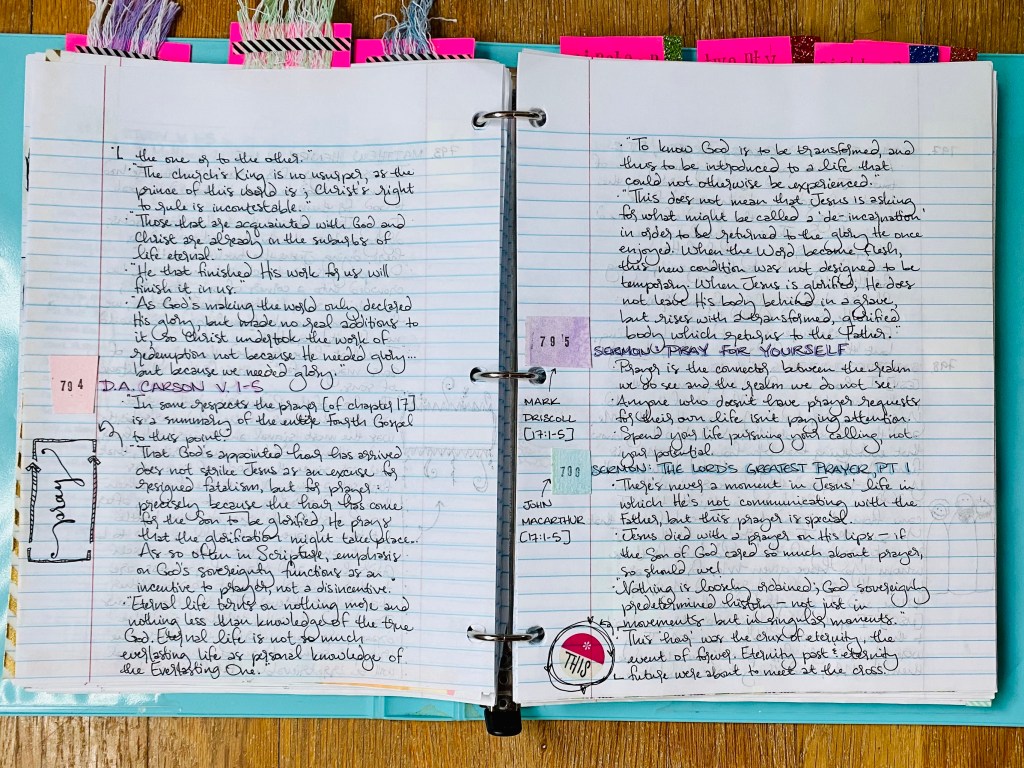 L the one or to the other."
·"The church's King is no usurper, as the
prince of this world is; Christ's right
to rule is incontestable."
·"Those that are acquainted with God and
Christ are already in the suburbs of
life eternal."
·"He that finished His work for us will
finish it in us."
·"As God's making the world only declared
His glory, but made no real additions to
it, so Christ undertook the work of
redemption not because He needed glory...
but because we needed glory."
794
D.A. CARSON V. 1-5
·"In some respects the prayer [of chapter 17]
is a summary of the entire Fourth Gospel
to this point."
pray
·"That God's appointed hour has arrived
does not strike Jesus as an excuse for
resigned fatalism, but for prayer:
precisely because the hour has come
for the Son to be glorified, He prays
that the glorification might take place.
As so often in Scripture, emphasis
on God's sovereignty functions as an
incentive to prayer, not a disincentive."
·"Eternal life turns on nothing more and
nothing less than knowledge of the true
God. Eternal life is not so much
everlasting life as personal knowledge of
the Everlasting One."
·"To know God is to be transformed, and
thus to be introduced to a life that
could not otherwise be experienced."
·"This does not mean that Jesus is asking
for what might be called a 'de-incarnation'
in order to be returned to the glory He once
enjoyed. When the Word became flesh,
this new condition was not designed to be
temporary. When Jesus is glorified, He does
not leave His body behind in a grave,
but rises with a transformed, glorified
body which returns to the Father."
795
SERMON: PRAY FOR YOURSELF
MARK
DRISCOLL
[17:1-5]
·Prayer is the connector between the realm
we do see and the realm we do not see.
·Anyone who doesn't have prayer requests
for their own life isn't paying attention.
·Spend your life pursuing your calling, not
your potential.
796
SERMON: THE LORD'S GREATEST PRAYER, PT. 1
JOHN
MACARTHUR
[17:1-5]
·There's never a moment in Jesus' life in
which He's not communicating with the
Father, but this prayer is special.
·Jesus died with a prayer on His lips — if
the Son of God cared so much about prayer,
so should we!
·"Nothing is loosely ordained; God sovereignly
predetermined history — not just in
movements but in singular moments."
THIS
·"This 'hour' was the crux of eternity, the
event of forever. Eternity past & eternity
L future were about to meet at the cross.